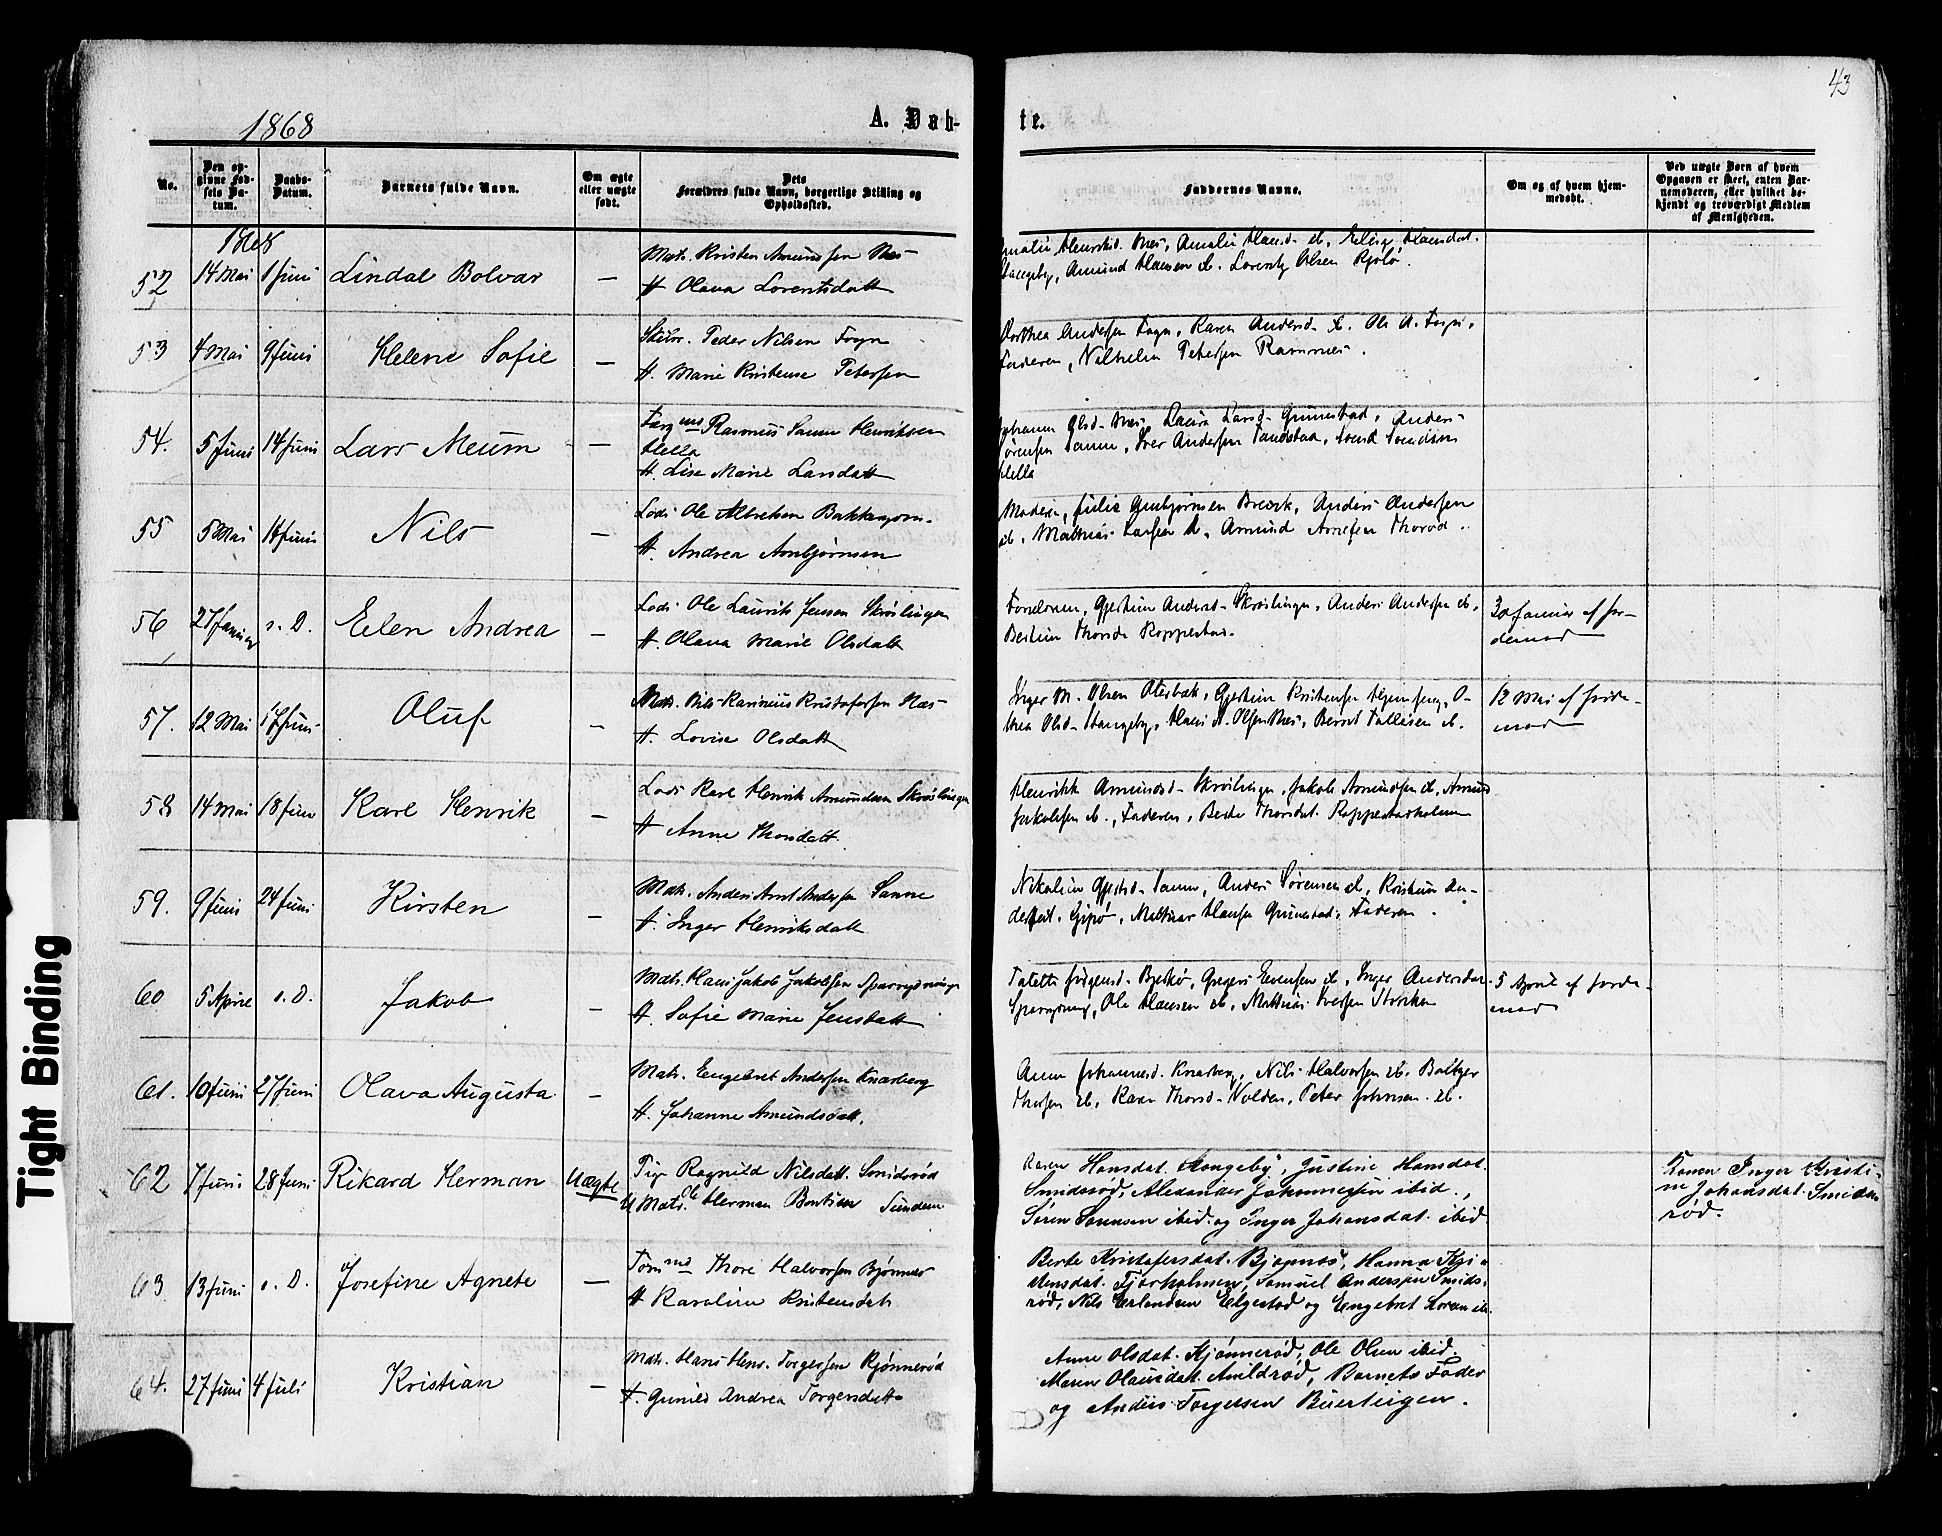 43
1868
A. Døb-
te.
No.
Den op-
givne Fød-
sels Da-
tum.
Daabs-
Datum.
Barnets fulde Navn.
Om ægte
eller uægte
født.
Dets
Forældres fulde Navn, borgerlige Stilling og
Opholdssted.
Faddernes Navne.
Om og af hvem hjem-
medøbt.
Ved uægte Børn af hvem
Opgaven er skeet, enten Bar-
nemoderen, eller hvilket be-
kjendt og troværdigt Medlem
af Menigheden.
1868
52 14 Mai 1 Juni Lindal Bolvar —
Matr. Kristen Amundsen Næs
H. Olava Lorentsdatt
Næs, Amalie Hansd. ib, Hansdat.
Stangeby, Amund Hansen ib. Lorentz Olsen
53 4 Mai 9 Juni Helene Sofie —
Styrm. Peder Nilsen Foyn
H. Marie Kristense Petersen
Dorthea Andersen Foyn, Karen Andersd. ib. Ole A. Foyn,
Faderen, Vilhelm Petersen Ramnæs.
54. 5 Juni 14 Juni Lars Meum —
Rasmus Sanne Henriksen
Hella
H. Lise Marie Larsdatt
Johanna Olsd. Næs, Laura Larsd. Grimestad, Anders
Sørensen Sanne, Iver Andersen Svend Svendsen
Hella
55 5 Mai 14 Juni Nils —
Lods Ole Albretsen Bakkegom.
H. Andrea Arnbjørnsen
Moderen, Julie Arnbjørnsen Anders Andersen
ib. Mathias Larsen ib, Amund Arnesen Thorød.
56 27 Januar s. D. Elen Andrea —
Lods Ole Laurits Jensen Skrøslingen
H. Olava Marie Olsdatt
Forældrene, Gjertine Andersd. Skrøslingen, Anders Andersen ib,
Bertine Thorsd. Roppestad.
30 Januar af Jor-
demod
57. 12 Mai 17 Juni Oluf —
Matr. Nils Rasmus Kristofersen Næs
H. Lovise Olsdatt
Inger M. Olsen Oterbæk, Gjertine Kristensen O-
thea Olsd. Stangeby, Hans A. Olsen Næs, Bernt Tollefsen ib.
12 Mai af Jorde-
mod
58 14 Mai 18 Juni Karl Henrik —
Lods Karl Henrik Amundsen Skrøslingen
H Anne Thorsdatt.
Henrikke Amundsd. Skrøslingen, Jakob Amundsen ib, Amund
Jakobsen ib., Faderen, Berte Thorsdat. Roppestadholmen
59. 9 Juni 24 Juni Kirsten —
Matr. Anders Arnt Andersen Sanne
H. Inger Henriksdatt
Nikoline Gjertsd. Sanne, Anders Sørensen ib, Kristine An-
dersdat. Gipø, Mathias Hansen Grimestad, Faderen.
60 5 April s. D. Jakob —
Matr. Hans Jakob Jakobsen
H. Sofie Marie Jensdatt
Jørgensd. Gregers Evensen ib, Inger Andersdat.
Ole Hansen ib, Mathias Iversen
5 April af Jorde-
mod
61. 10 Juni 27 Juni Olava Augusta —
Matr. Engebret Andersen Knarberg
H. Johanne Amundsdatt.
Anne Johannesd. Knarberg, Nils Halvorsen ib. Boltzer
Thorsen ib, Karen Thorsd. Volden, Peter Johnsen ib.
62 7 Juni 28 Juni Rikard Herman Uægte
Pige Ragnild Nilsdatt. Smidsrød
U Matr. Ole Herman Bentsen Sundene
Karen Hansdat. Stangeby, Justine Hansdat.
Smidsrød, Alexander Johannessen ibid.,
Søren Sørensen ibid. og Inger Johansdat. ibid
Konen Inger Kristi-
ne Johansdat. Smids-
rød.
63 13 Juni s. D. Josefine Agnete —
Thore Halvorsen Bjønnes
H Karoline Kristensdatt.
Berte Kristofersdat. Bjønnes, Hanna Kri-
stensdat. Fjærholmen, Samuel Andersen Smids-
rød, Nils Erlandsen Elgestad og Engebret Sørensen ib.
64. 27 Juni 4 Juli Kristian —
Matr. Hans Henr. Torgersen Kjønnerød
H. Gunild Andrea Torgersdatt
Anne Olsdat. Kjønnerød, Ole Olsen ibid.
Maren Olausdatt. Arnildrød, Barnets Fader
og Anders Torgersen Buerteigen.
Tight Binding